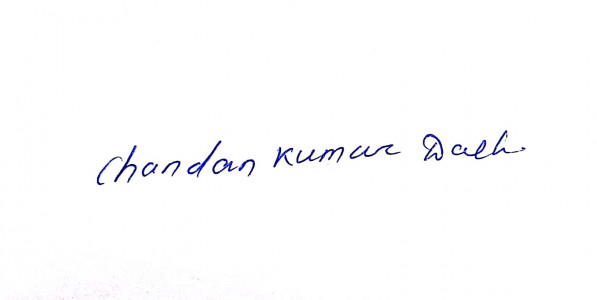 Chandan Kumar Dash